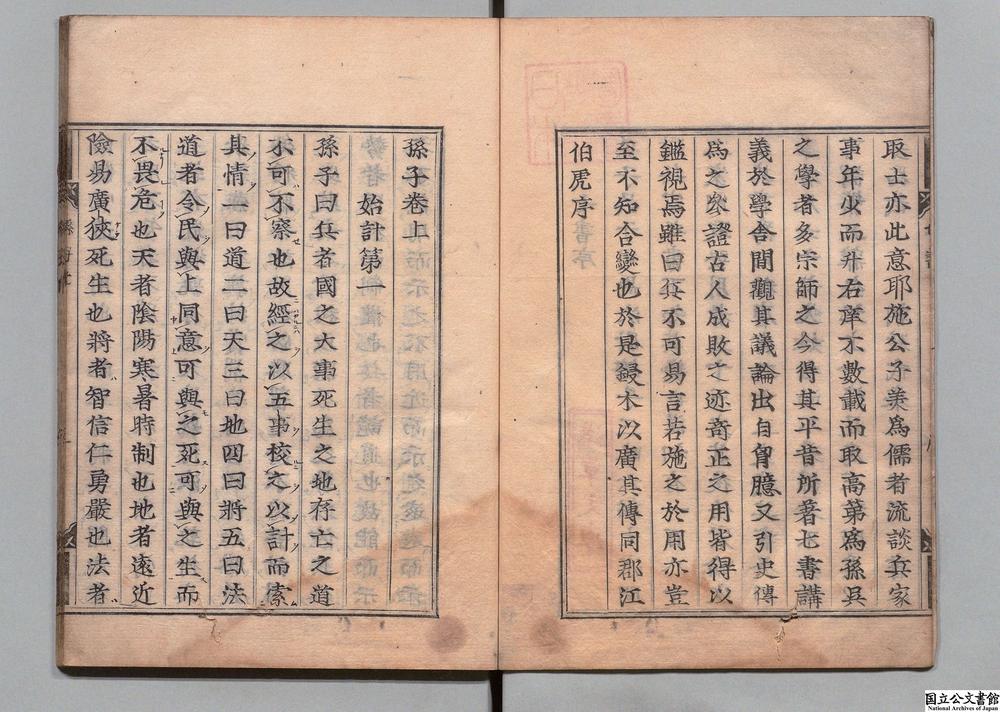 取士亦此意耶施公子美爲儒者流談兵家
事年少而升右庠不數載而取高第爲孫吳
之學者多宗師之今得其平昔所著七書講
義於學舍間觀其議論出自胷臆又引史傳
爲之參證古人成敗之迹奇正之用皆得以
鑑視焉雖曰兵不可易言若施之於用亦豈
至不知合變也於是鋟木以廣其傳同郡江
伯虎序
孫子卷上
始計第一
孫子曰兵者國之大事死生之地存亡之道
不可不察也故經之以五事校之以計而索
其情一曰道二曰天三曰地四曰將五曰法
道者令民與上同意可與之死可與之生而
不畏危也天者陰陽寒暑時制也地者遠近
險易廣狹死生也將者智信仁勇嚴也法者
国立公文書館
National Archives of Japan